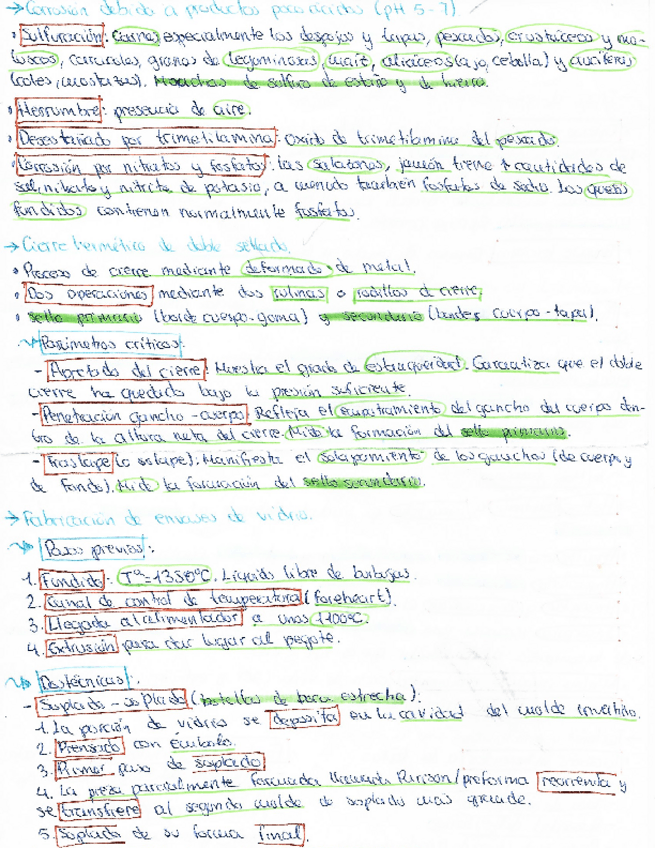 → Corrosión debida a productos poco ácidos (pH 5-7)
• Sulfuración: Carnes especialmente los despojos y tripas, pescados, crustáceos y mo-
luscos, caracoles, granos de leguminosas, maíz, aliáceas (ajo, cebolla) y crucíferas
(coles, mostazas). Manchas de sulfuro de estaño y de hierro.
• Herrumbre: presencia de aire.
• Desestañado por trimetilamina: Óxido de trimetilamina del pescado.
• Corrosión por nitratos y fosfatos: Las salazones, jamón tiene ↑ cantidades de
sal, nitrato y nitrito de potasio, a menudo también fosfatos de sodio. Los quesos
fundidos contienen normalmente fosfatos.
→ Cierre hermético de doble sellado.
• Proceso de cierre mediante deformado de metal.
• Dos operaciones mediante dos rulinas o rodillos de cierre.
• sello primario (borde cuerpo-goma) y secundario (bordes cuerpo-tapa).
Parámetros críticos:
- Apretado del cierre: Muestra el grado de estanqueidad. Garantiza que el doble
cierre ha quedado bajo la presión suficiente.
- Penetración gancho-cuerpo: Refleja el empotramiento del gancho del cuerpo den-
tro de la altura neta del cierre. Mide la formación del sello primario.
- Traslape (o solape). Manifiesta el solapamiento de los ganchos (de cuerpo y
de fondo). Mide la formación del sello secundario.
→ Fabricación de envases de vidrio.
Pasos previos:
1. Fundido: Tª=1350ºC. Líquido libre de burbujas.
2. Canal de control de temperatura (foreheart).
3. Llegada al alimentador a unos 1100ºC.
4. Extrusión para dar lugar al pegote.
Dos técnicas:
- Soplado-soplado (botellas de boca estrecha):
1. La porción de vidrio se deposita en la cavidad del molde invertido.
2. Prensado con émbolo.
3. Primer paso de soplado
4. La pieza parcialmente formada llamada Parison/preforma recorrida y
se transfiere al segundo molde de soplado más grande.
5. Soplado de su forma final.